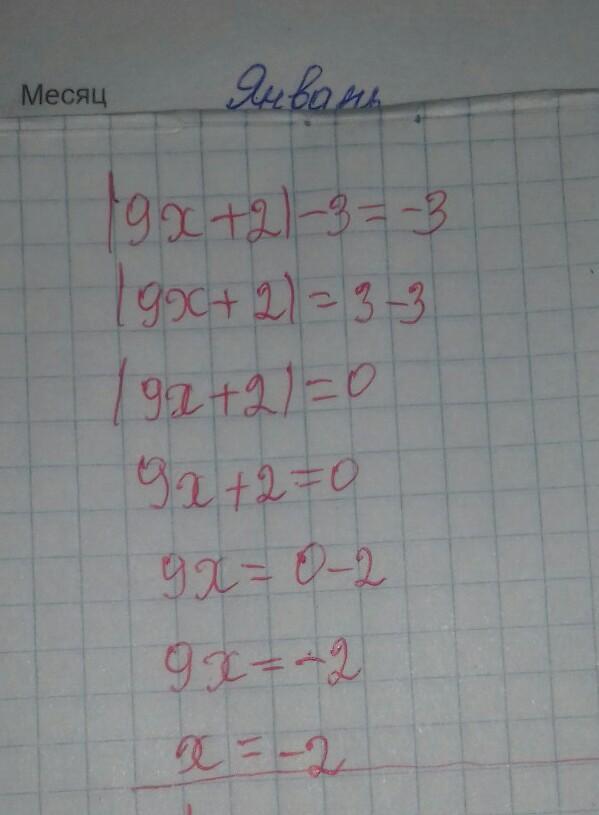 Месяц Январь
|9x+2|-3=-3
|9x+2|=3-3
|9x+2|=0
9x+2=0
9x=0-2
9x=-2
x=-2